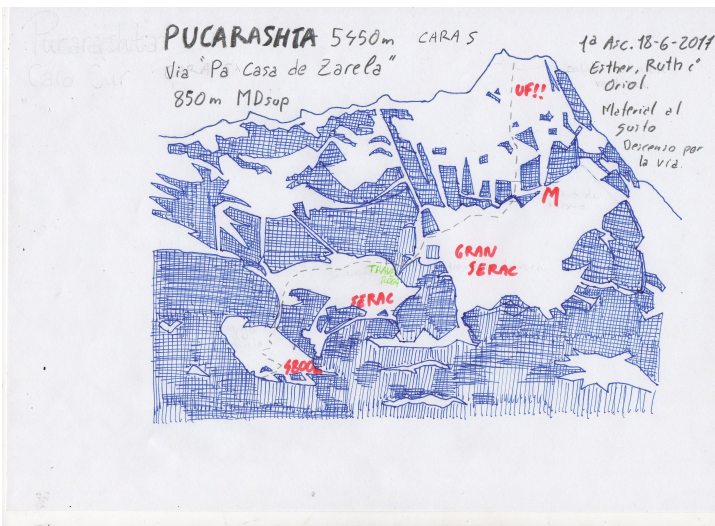 PUCARASHTA 5450m CARA S
Via "Pa Casa de Zarela"
850m MDsup
1ª Asc. 18-6-2017
Esther, Ruth i
Oriol.
Material al
gusto
Descenso por
la via.
UF!!
M
GRAN
SERAC
SERAC